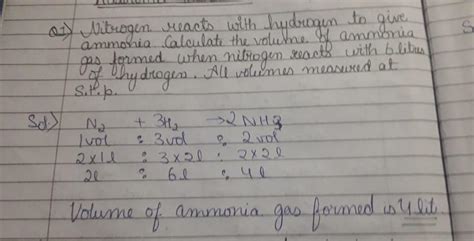 Q1) Nitrogen reacts with hydrogen to give
ammonia. Calculate the volume of ammonia
gas formed when nitrogen reacts with 6 litres
of hydrogen. All volumes measured at
S.t.p.
Sol.) N₂ + 3H₂ → 2NH3
1vol : 3vol : 2vol
2x1l : 3x2l : 2x2l
2l : 6l : 4l
Volume of ammonia gas formed is 4 lit